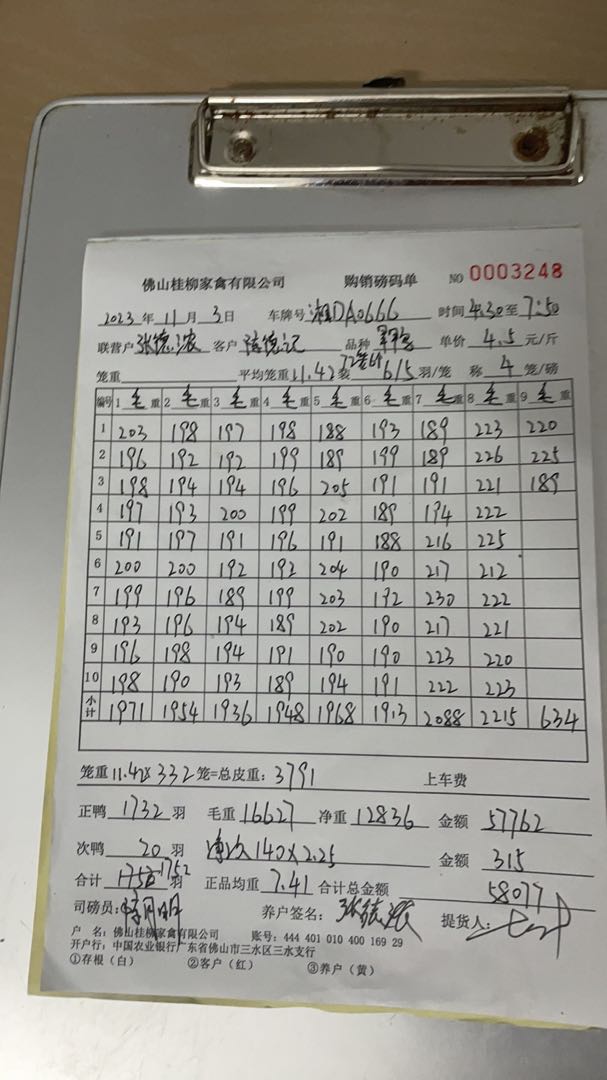 佛山桂柳家禽有限公司 购销磅码单 NO 0003248
2023年 11月 3日 车牌号 湘DA0666 时间 4:30至 7:50
联营户 张德浓 客户 陆德记 品种 单价 4.5 元/斤
笼重 平均笼重 11.42 装 6/5 羽/笼 称 4 笼/磅
编号 1 毛 重 2 毛 重 3 毛 重 4 毛 重 5 毛 重 6 毛 重 7 毛 重 8 毛 重 9 毛 重
1 203 198 197 198 188 193 189 223 220
2 196 192 192 199 189 199 189 226 225
3 198 194 194 196 205 191 191 221 189
4 197 193 200 199 202 189 194 222
5 191 197 191 196 191 188 216 225
6 200 200 192 192 204 190 217 212
7 199 196 189 199 203 192 230 222
8 193 196 194 189 202 190 217 221
9 196 198 194 191 190 190 223 220
10 198 190 193 189 194 191 222 223
小计 1971 1954 1936 1948 1968 1913 2088 2215 634
笼重 11.42x 332 笼=总皮重: 3791 上车费
正鸭 1732 羽 毛重 16627 净重 12836 金额 57762
次鸭 20 羽 140×2.25 金额 315
合计 1752 羽 正品均重 7.41 合计总金额 58077
司磅员: 养户签名: 张德浓 提货人:
户 名: 佛山桂柳家禽有限公司 账号: 444 401 010 400 169 29
开户行: 中国农业银行广东省佛山市三水区三水支行
①存根(白) ②客户(红) ③养户(黄)